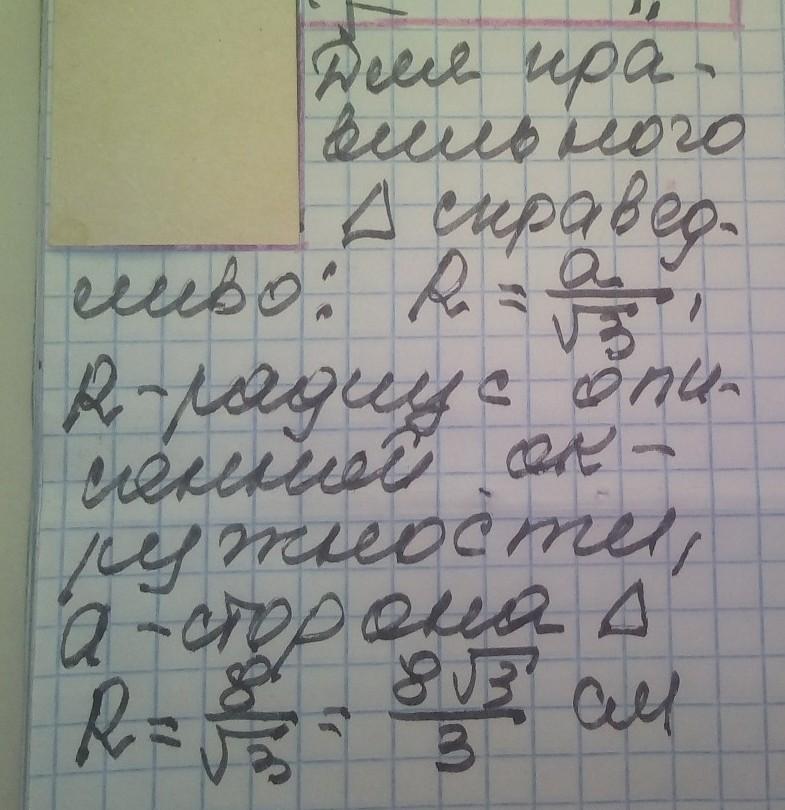 Для пра-
вильного
Δ справед-
ливо: R = a/√3,
R - радиус опи-
санной ок-
ружности,
a - сторона Δ
R = 8/√3 = 8√3/3 см